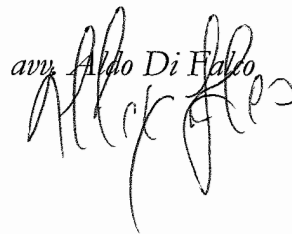 avv. Aldo Di Falco